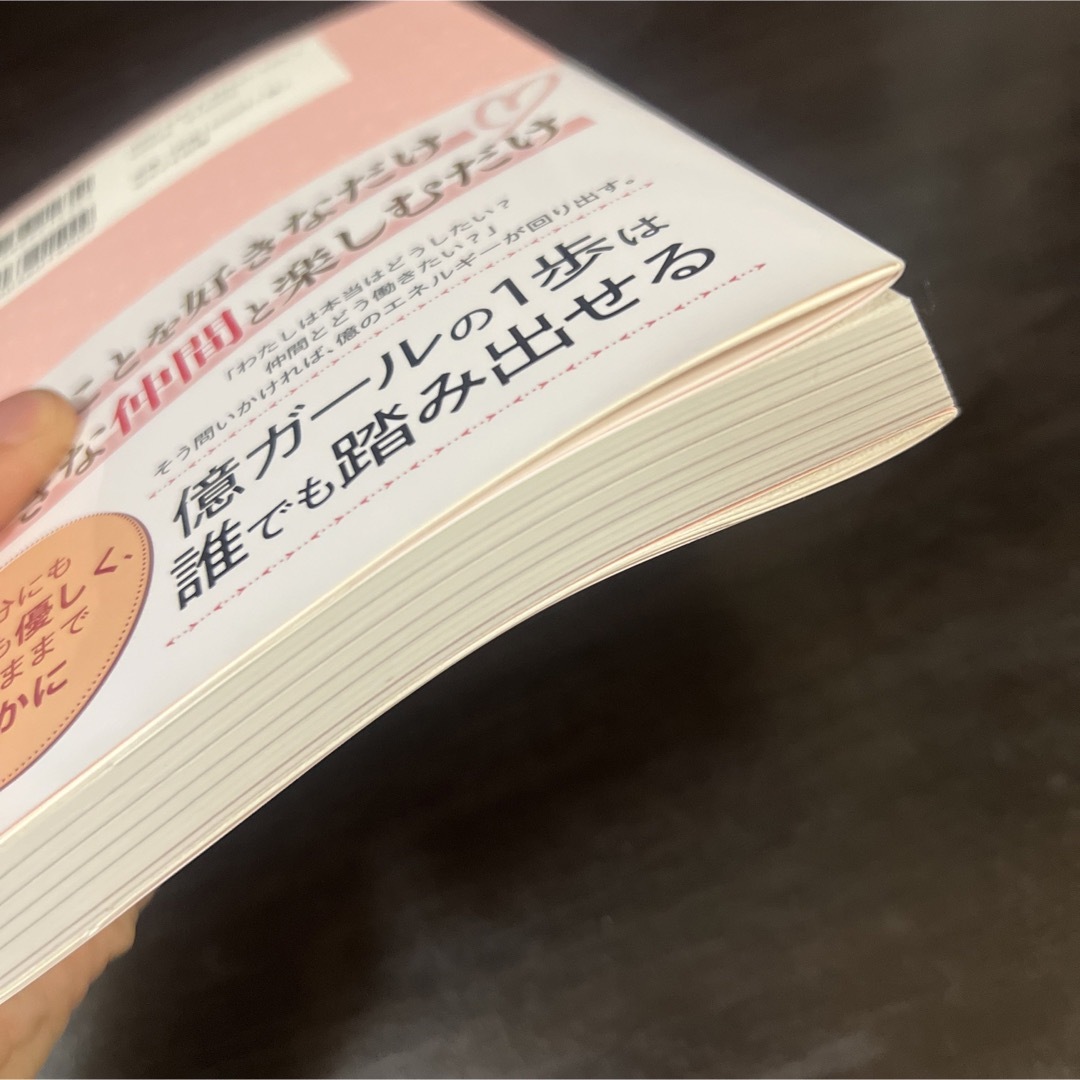 ことを好きなだけ
きな仲間と楽しむだけ
「わたしは本当はどうしたい?
仲間とどう働きたい?」
そう問いかければ、億のエネルギーが回り出す。
億ガールの1歩は
誰でも踏み出せる
分にも
優しく、
ままで
かに